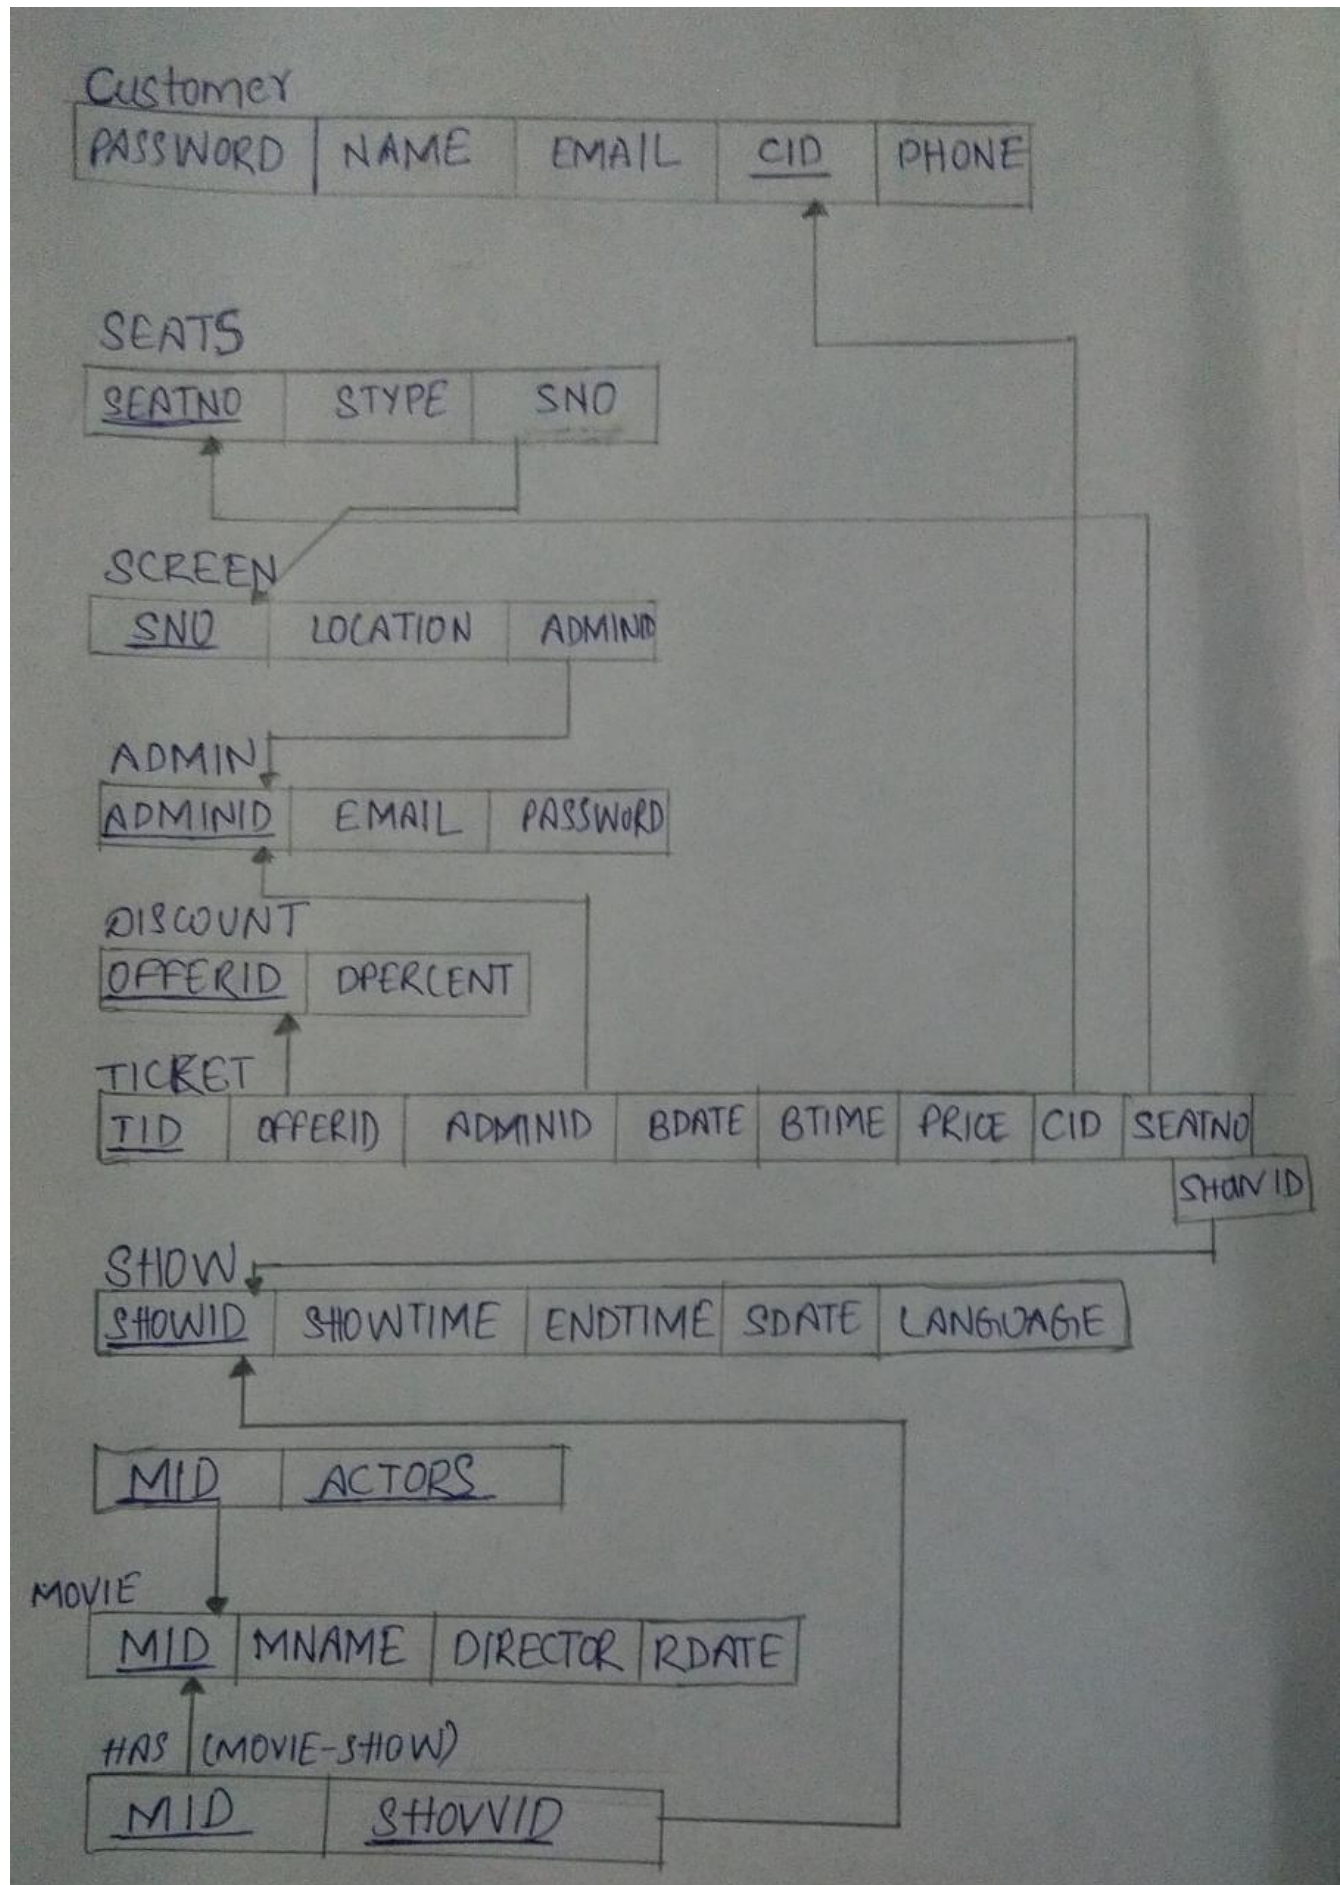 Customer
PASSWORD NAME EMAIL CID PHONE
SEATS
SEATNO STYPE SNO
SCREEN
SNO LOCATION ADMINID
ADMIN
ADMINID EMAIL PASSWORD
DISCOUNT
OFFERID DPERCENT
TICKET
TID OFFERID ADMINID BDATE BTIME PRICE CID SEATNO
SHOWID
SHOW
SHOWID SHOWTIME ENDTIME SDATE LANGUAGE
MID ACTORS
MOVIE
MID MNAME DIRECTOR RDATE
HAS (MOVIE-SHOW)
MID SHOWID